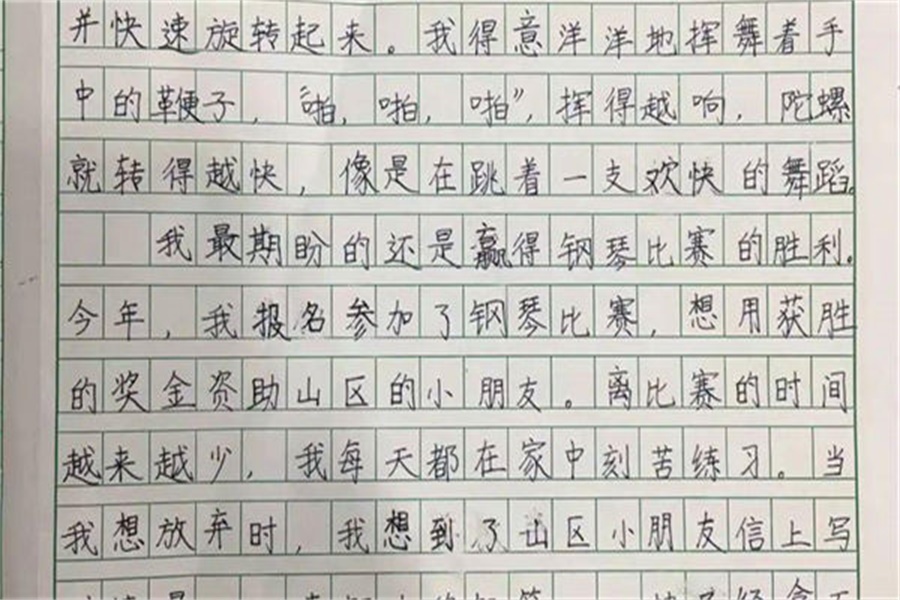 并快速旋转起来。我得意洋洋地挥舞着手
中的鞭子，“啪，啪，啪”，挥得越响，陀螺
就转得越快，像是在跳着一支欢快的舞蹈。
我最期盼的还是赢得钢琴比赛的胜利。
今年，我报名参加了钢琴比赛，想用获胜
的奖金资助山区的小朋友。离比赛的时间
越来越少，我每天都在家中刻苦练习。当
我想放弃时，我想到了山区小朋友信上写